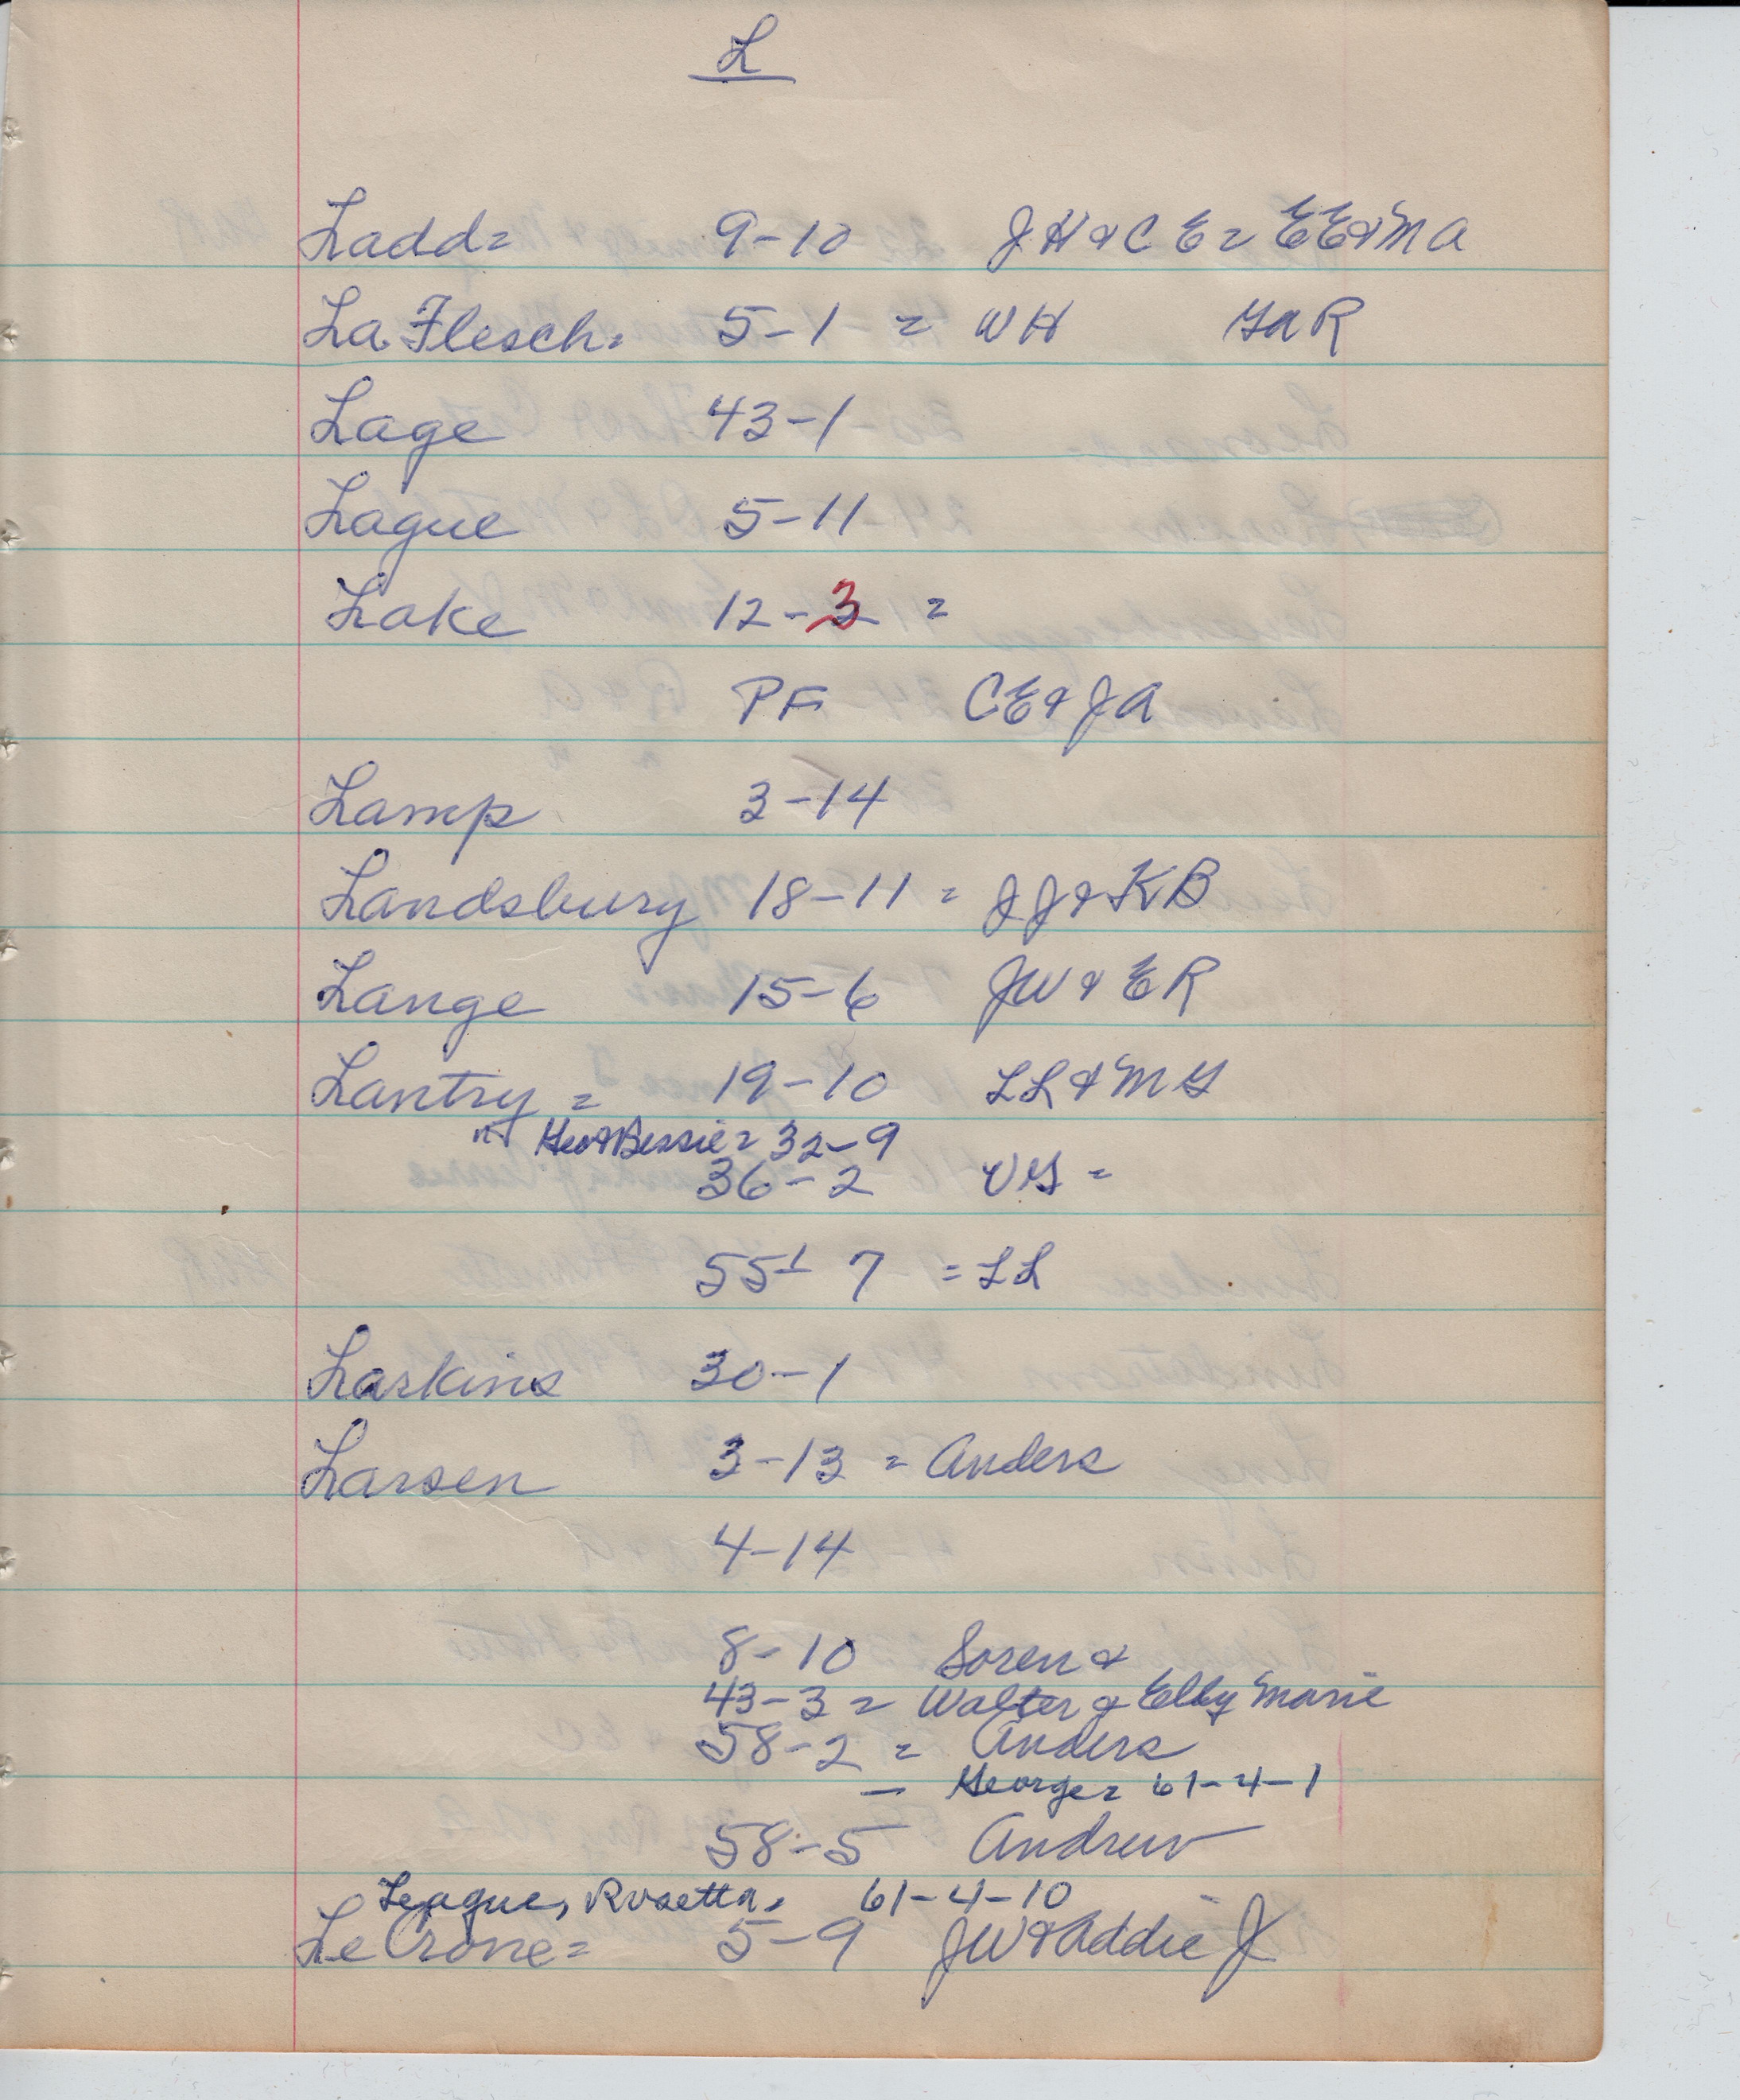 L
Ladd= 9-10 JH & CE = EE & MA
La Flesch= 5-1 = WH GAR
Lage 43-1
Lague 5-11
Lake 12-3 =
PF CE & JA
Lamp 3-14
Landsbury 18-11 = JJ & KB
Lange 15-6 JW & ER
Lantry = 19-10 LL & MG
" Geo & Bessie = 32-9
36-2 VG =
55-7 = LL
Larkins 30-1
Larsen 3-13 = Anders
4-14
8-10 Soren &
43-3 = Walter & Elby Marie
58-2 = Anders
- George = 61-4-1
58-5 Andrew
League, Rosetta, 61-4-10
Le Crone = 5-9 JW & Addie J